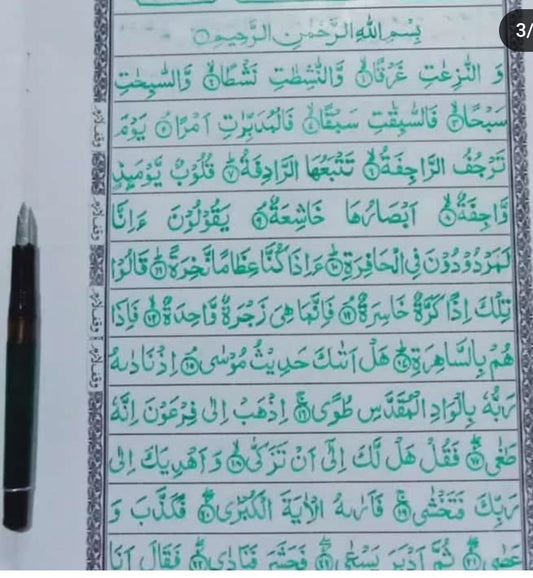 3/
بِسْمِ اللهِ الرَّحْمٰنِ الرَّحِيْمِ
وَ النّٰزِعٰتِ غَرْقًا ۙ۱ وَّالنّٰشِطٰتِ نَشْطًا ۙ۲ وَّالسّٰبِحٰتِ
سَبْحًا ۙ۳ فَالسّٰبِقٰتِ سَبْقًا ۙ۴ فَالْمُدَبِّرٰتِ اَمْرًا ۘ۵ يَوْمَ
تَرْجُفُ الرَّاجِفَةُ ۙ۶ تَتْبَعُهَا الرَّادِفَةُ ؕ۷ قُلُوْبٌ يَّوْمَىِٕذٍ
وَّاجِفَةٌ ۙ۸ اَبْصَارُهَا خَاشِعَةٌ ۘ۹ يَقُوْلُوْنَ ءَاِنَّا
لَمَرْدُوْدُوْنَ فِي الْحَافِرَةِ ؕ۱۰ ءَاِذَا كُنَّا عِظَامًا نَّخِرَةً ؕ۱۱ قَالُوْا
تِلْكَ اِذًا كَرَّةٌ خَاسِرَةٌ ۘ۱۲ فَاِنَّمَا هِيَ زَجْرَةٌ وَّاحِدَةٌ ۙ۱۳ فَاِذَا
هُمْ بِالسَّاهِرَةِ ؕ۱۴ هَلْ اَتٰىكَ حَدِيْثُ مُوْسٰى ۘ۱۵ اِذْ نَادٰىهُ
رَبُّهٗ بِالْوَادِ الْمُقَدَّسِ طُوًى ۚ۱۶ اِذْهَبْ اِلٰى فِرْعَوْنَ اِنَّهٗ
طَغٰى ۖ۱۷ فَقُلْ هَلْ لَّكَ اِلٰٓى اَنْ تَزَكّٰى ۙ۱۸ وَ اَهْدِيَكَ اِلٰى
رَبِّكَ فَتَخْشٰى ۚ۱۹ فَاَرٰىهُ الْاٰيَةَ الْكُبْرٰى ۖ۲۰ فَكَذَّبَ وَ
عَصٰى ۖ۲۱ ثُمَّ اَدْبَرَ يَسْعٰى ۖ۲۲ فَحَشَرَ فَنَادٰى ۖ۲۳ فَقَالَ اَنَا
وقف لازم
وقف لازم
وقف لازم
وقف لازم